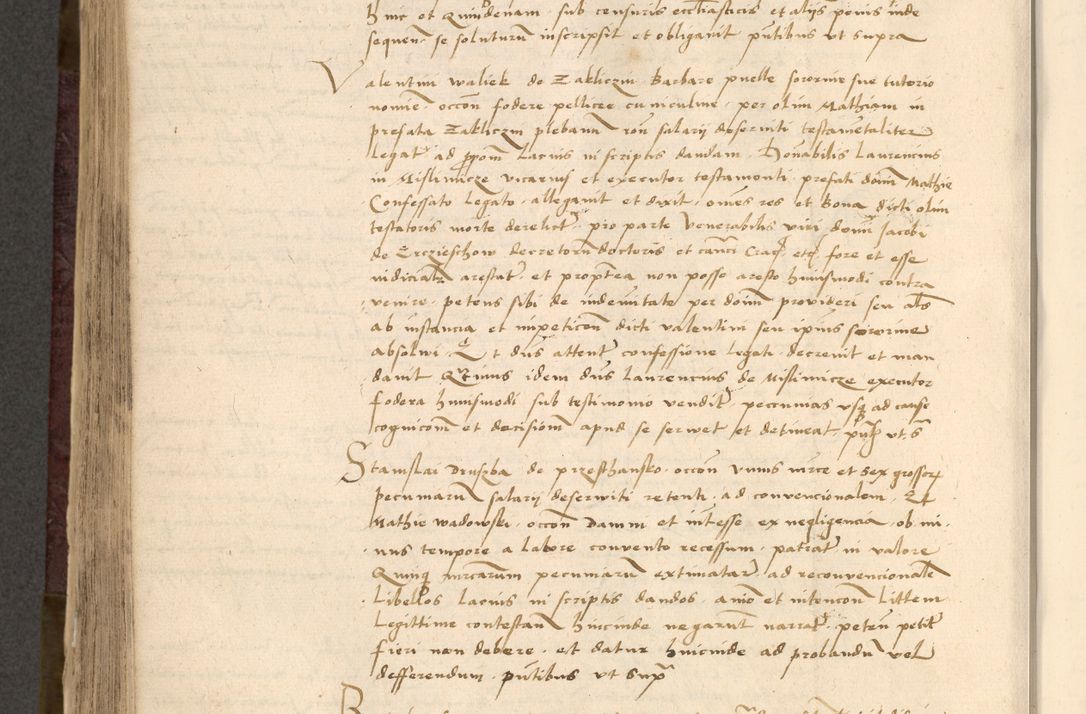 hinc et Quindenam sub censuris ecclīasticis et alijs penis inde
sequen̄ se soluturum inscripsit et obligauit pn̄tibus vt supra
Valentini waliek de Zakliczin Barbare puelle sororine sue tutorio
nomīe occōn fodere pellicee cuniculine per olim Mathiam in
prefata Zakliczin plebanū rōn salarij deserviti testamētaliter
Legat̄ ad ꝓpom̄ Lacius in scriptis dandam honabilis Laurencius
in Mislimicze vicarius et executor testamenti prefati domī Mathie
Confessato Legato allegauit et dixit om̄es res et Bona dicti olim
testatoris morte derelict̄ pro parte Venerabilis viri domī Jacobi
de Erczieschow decretorū doctoris et can̄ci Crac̄ etc̄ fore et esse
iudicialr̄ arestat̄ et propt̄ea non posse aresto huiusmodi contra
venire petens sibi de indemnitate per domī provideri seu al̄s
ab instancia et impeticōn dicti valentini seu ipius sororine
absolwi Et dn̄s attent̄ confessione Legati decrevit et man
davit Q̄tinus idem dn̄s Laurencius de Mislimicze executor
fodera huiusmodi sub testimonio vendit̄ pecunias vsq̄ ad cause
cognicōm et decisiōm apud se servet et detineat pn̄t̄ vt s̄
Stanislai Druszba de przesthansko occōn vnius mrce et sex grossor̄
pecuniarū salarij deserviti retenti ad convencionalem Et
Mathie wadowski occōn Damni et interesse ex negligencia ob mi
nus tempore a labore convento recessum patrat̄ in valore
Quinq̄ mrcarum pecuniarū extimatar̄ ad reconvencionalē
Libellos Lacius in scriptis dandos animo et intencōn Littem
Legittime contestan̄ hincinde negarūt narrat̄ peten̄ petit̄
fieri non debere et datur hincinde ad probandū vel
defferendum pn̄tibus vt sup̄